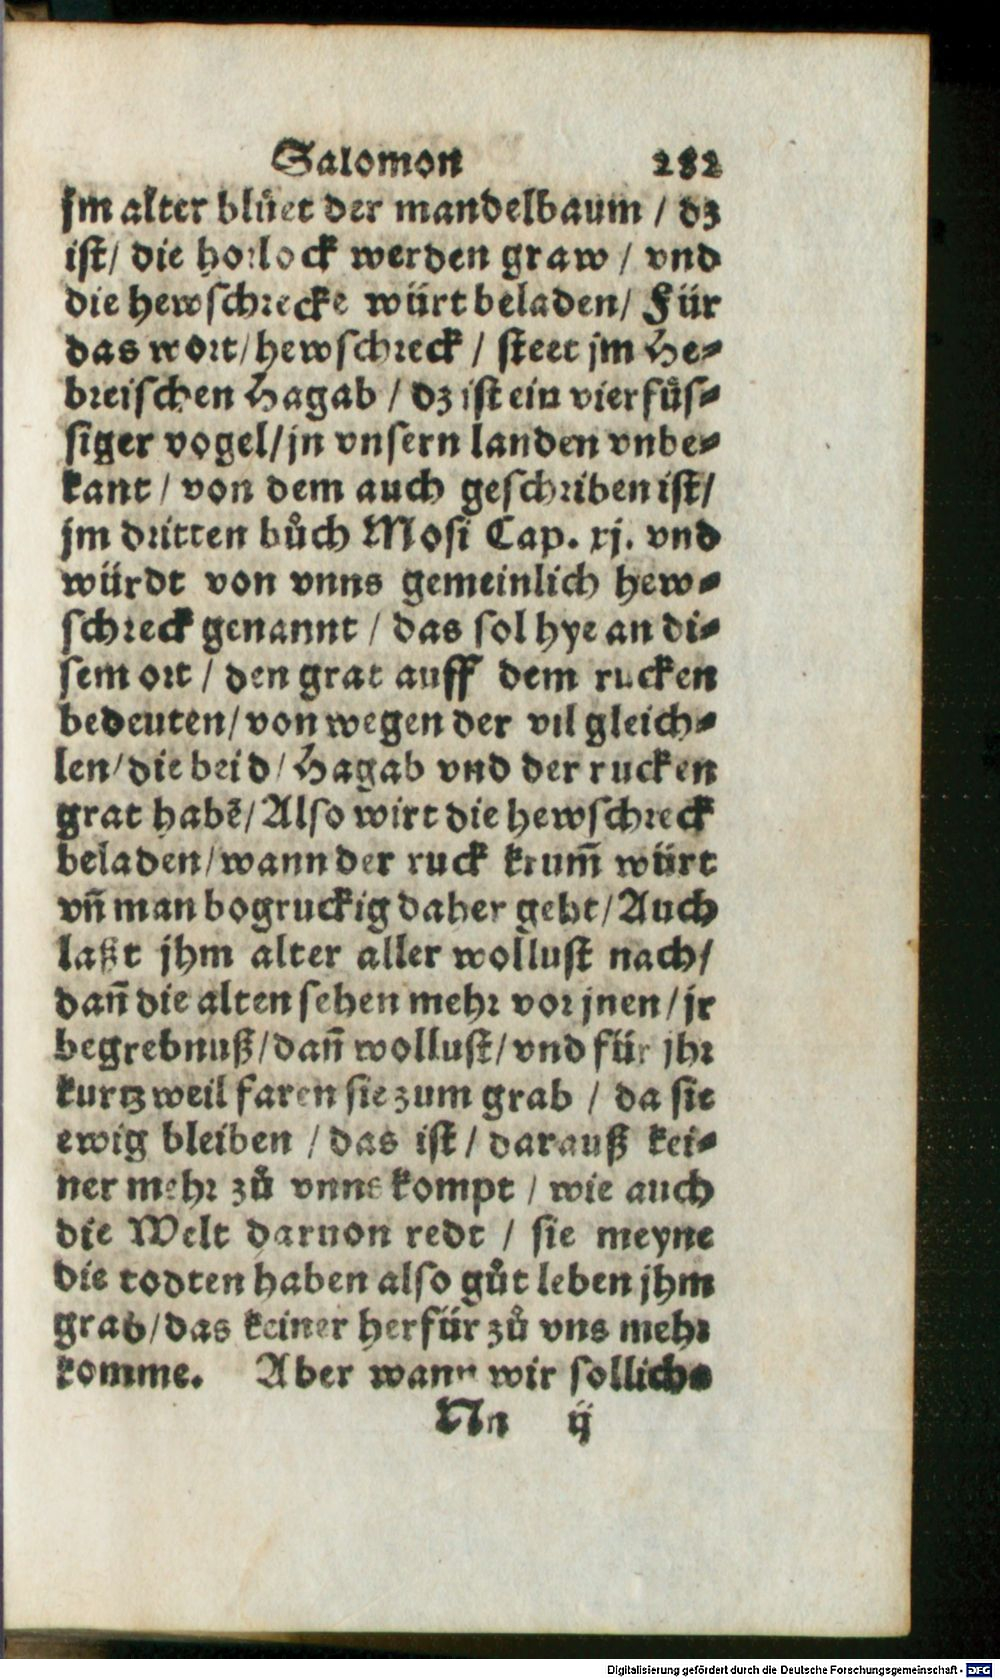 Salomon 282
jm alter blůet der mandelbaum / dz
ist / die horlock werden graw / vnd
die hewschrecke würt beladen / Für
das wort / hewschreck / steet jm He⸗
breischen Hagab / dz ist ein vierfůs⸗
siger vogel / jn vnsern landen vnbe⸗
kant / von dem auch geschriben ist /
jm dritten bůch Mosi Cap. xj. vnd
würdt von vnns gemeinlich hew⸗
schreck genannt / das sol hye an di⸗
sem ort / den grat auff dem rucken
bedeuten / von wegen der vil gleich⸗
len / die beid / Hagab vnd der rucken
grat habẽ / Also wirt die hewschreck
beladen / wann der ruck krum̃ würt
vñ man bogruckig daher geht / Auch
laßt jhm alter aller wollust nach /
dañ die alten sehen mehr vor jnen / jr
begrebnuß / dañ wollust / vnd für jhr
kurtzweil faren sie zum grab / da sie
ewig bleiben / das ist / darauß kei⸗
ner mehr zů vnns kompt / wie auch
die Welt daruon redt / sie meyne
die todten haben also gůt leben jhm
grab / das keiner herfür zů vns mehr
komme. Aber wann wir solliche
Nn ij
Digitalisierung gefördert durch die Deutsche Forschungsgemeinschaft - DFG